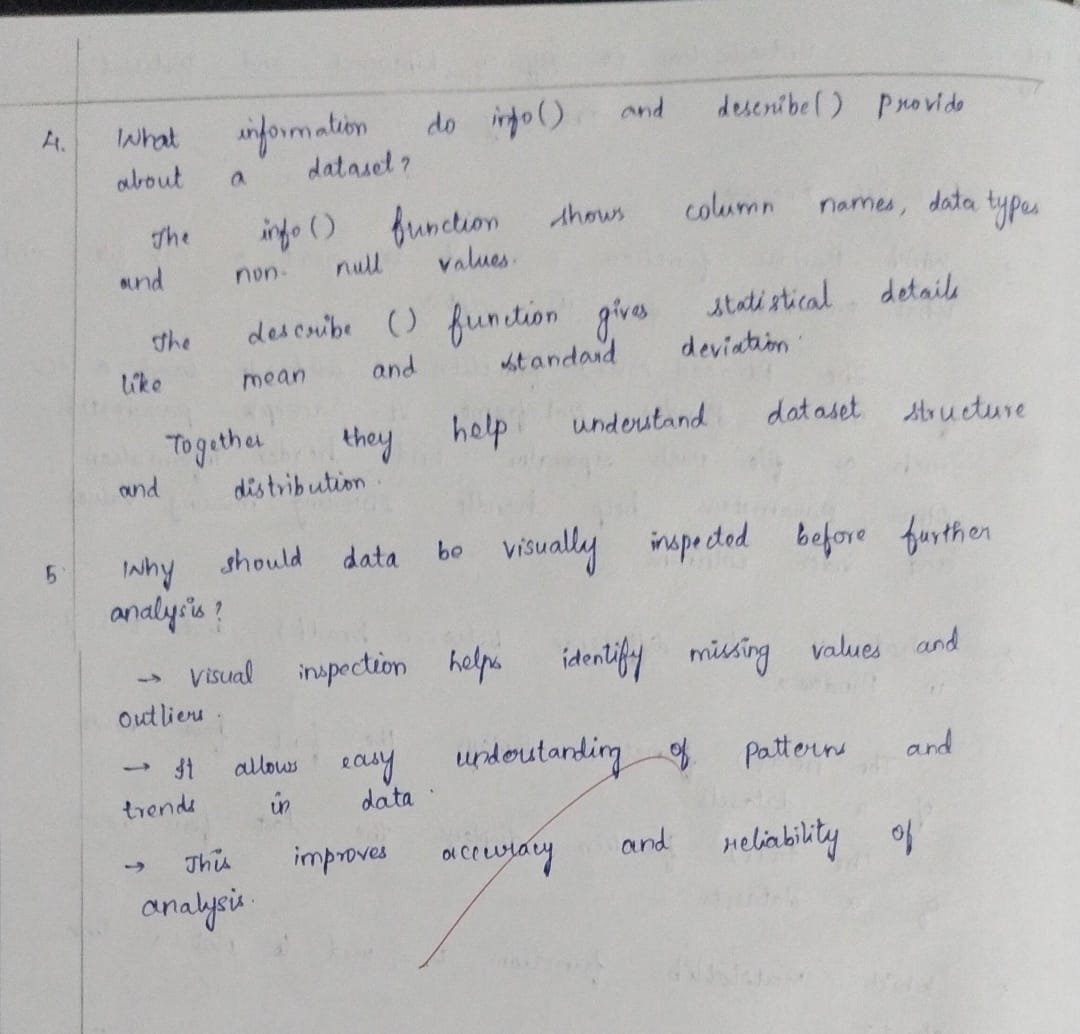 4. What information do info() and describe() provide
about a dataset?
The info() function shows column names, data types
and non-null values.
The describe () function gives statistical details
like mean and standard deviation.
Together they help understand dataset structure
and distribution.
5. Why should data be visually inspected before further
analysis?
→ Visual inspection helps identify missing values and
outliers.
→ It allows easy understanding of patterns and
trends in data.
→ This improves accuracy and reliability of
analysis.